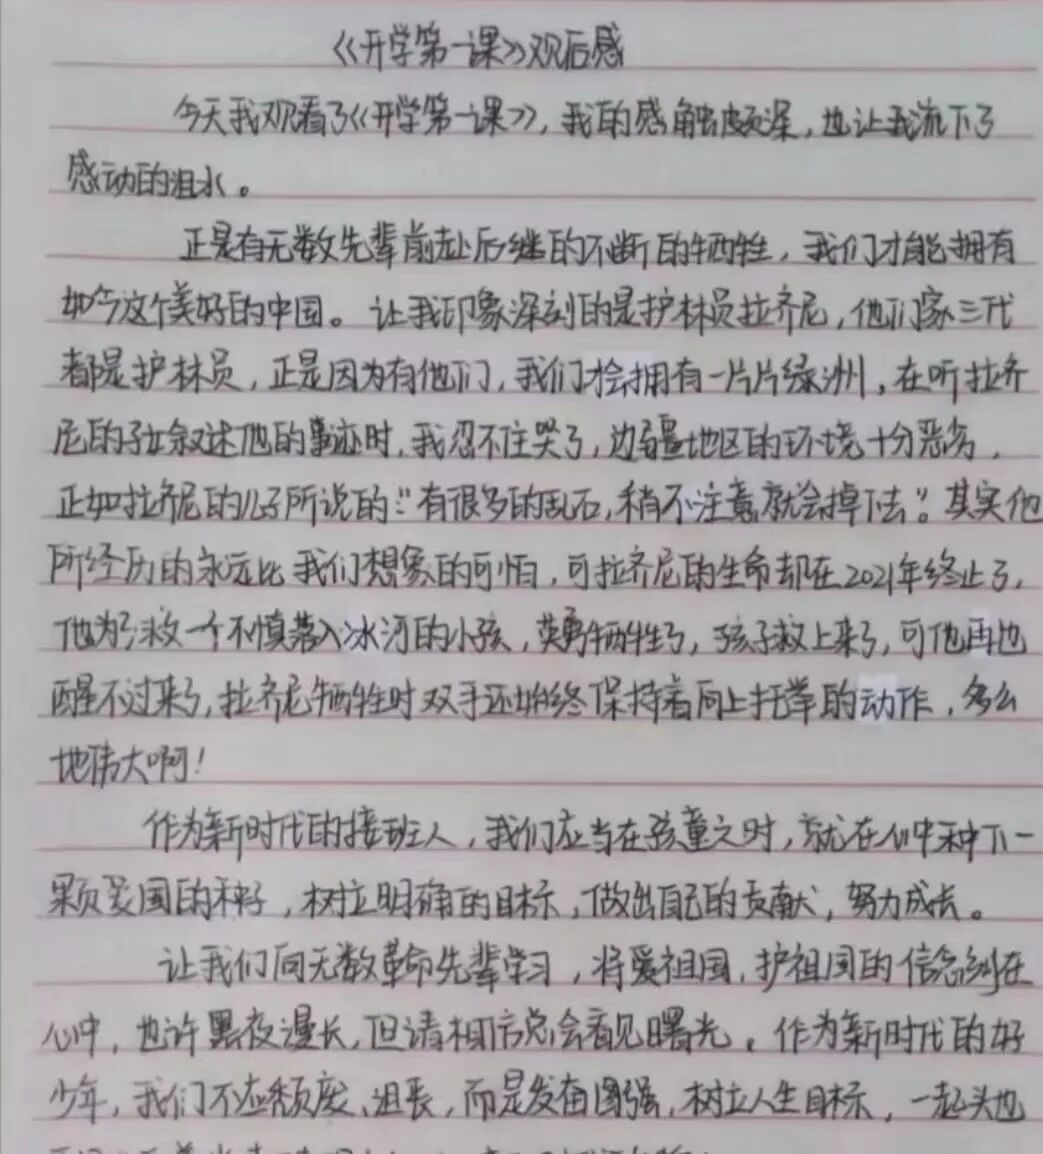 《开学第一课》观后感
今天我观看了《开学第一课》，我的感触颇深，也让我流下了
感动的泪水。
正是有无数先辈前赴后继的不断的牺牲，我们才能拥有
如今这个美好的中国。让我印象深刻的是护林员拉齐尼，他们家三代
都是护林员，正是因为有他们，我们才会拥有一片片绿洲，在听拉齐
尼的子女叙述他的事迹时，我忍不住哭了，边疆地区的环境十分恶劣，
正如拉齐尼的儿子所说的：“有很多的乱石，稍不注意就会掉下去”。其实他
所经历的永远比我们想象的可怕，可拉齐尼的生命却在2021年终止了，
他为了救一个不慎落入冰河的小孩，英勇牺牲了，孩子救上来了，可他再也
醒不过来了，拉齐尼牺牲时双手还始终保持着向上托举的动作，多么
地伟大啊！
作为新时代的接班人，我们应当在孩童之时，就在心中种下一
颗爱国的种子，树立明确的目标，做出自己的贡献，努力成长。
让我们向无数革命先辈学习，将爱祖国，护祖国的信念刻在
心中，也许黑夜漫长，但请相信总会看见曙光。作为新时代的好
少年，我们不应颓废、沮丧，而是发奋图强，树立人生目标，一起头也